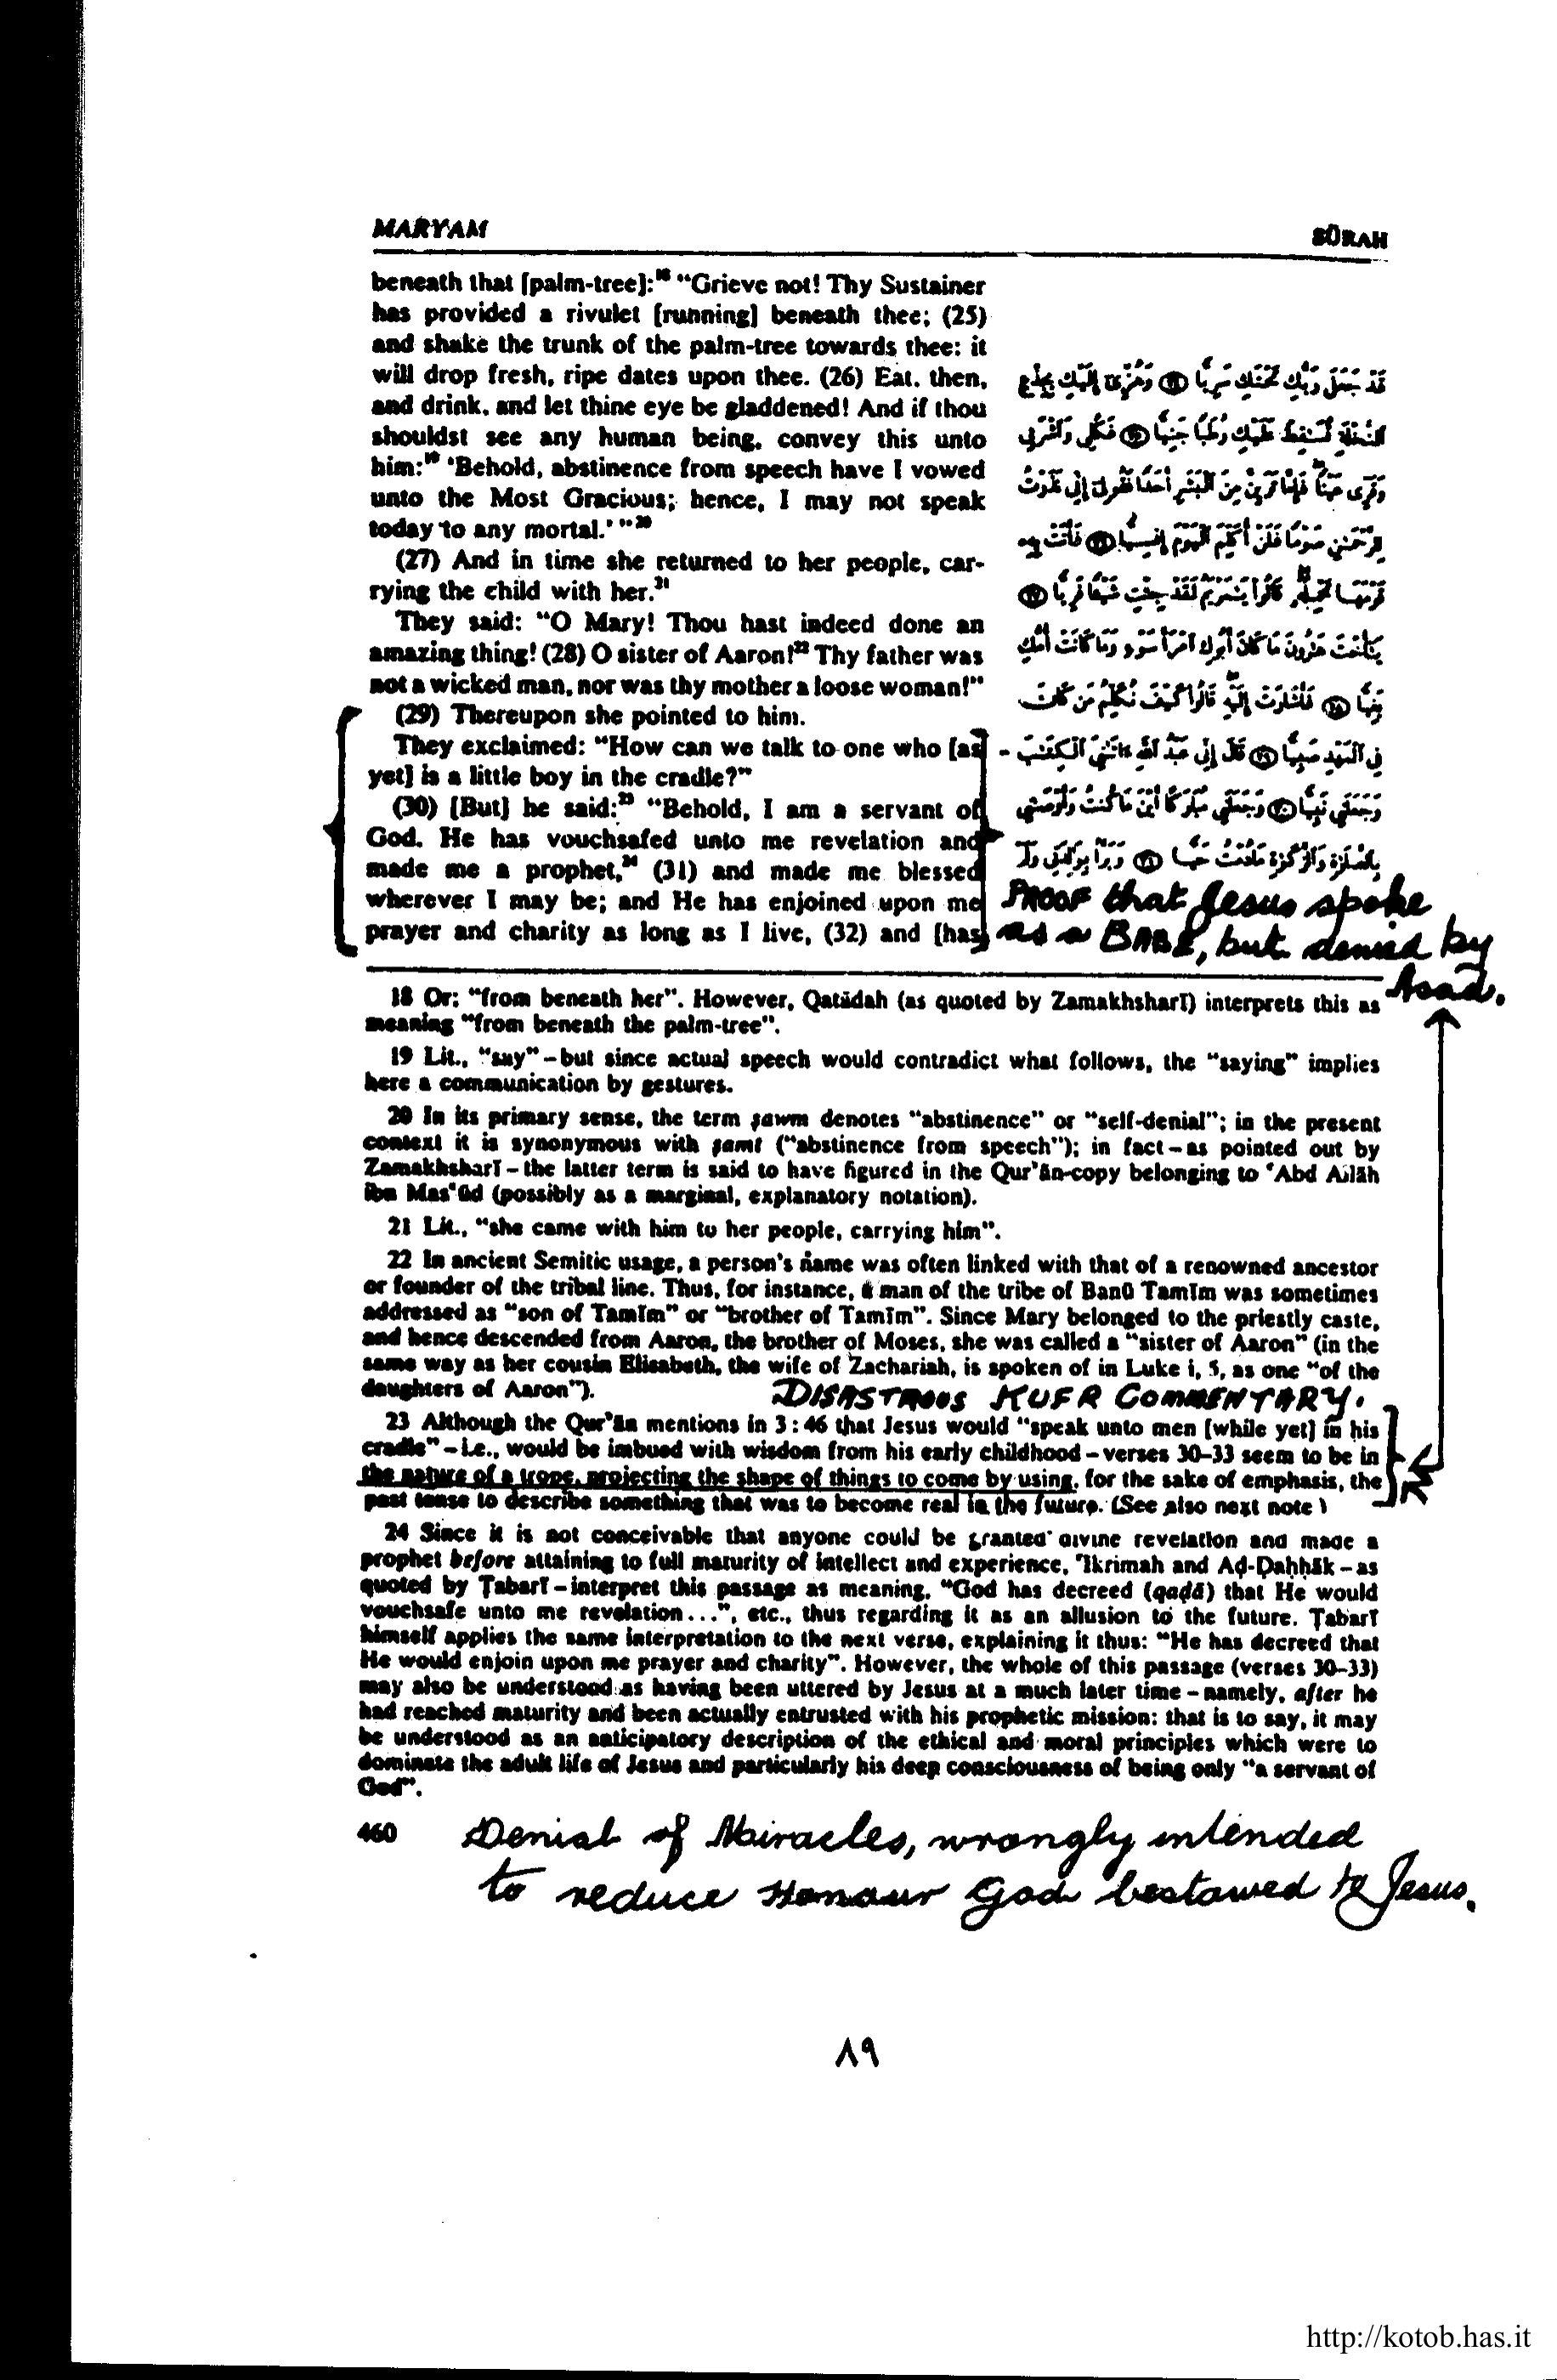 MARYAM
SŪRAH
beneath that [palm-tree]:¹⁸ "Grieve not! Thy Sustainer
has provided a rivulet [running] beneath thee; (25)
and shake the trunk of the palm-tree towards thee: it
will drop fresh, ripe dates upon thee. (26) Eat, then,
and drink, and let thine eye be gladdened! And if thou
shouldst see any human being, convey this unto
him:¹⁹ 'Behold, abstinence from speech have I vowed
unto the Most Gracious; hence, I may not speak
today to any mortal.' "²⁰
(27) And in time she returned to her people, car-
rying the child with her.²¹
They said: "O Mary! Thou hast indeed done an
amazing thing! (28) O sister of Aaron!²² Thy father was
not a wicked man, nor was thy mother a loose woman!"
(29) Thereupon she pointed to him.
They exclaimed: "How can we talk to one who [as
yet] is a little boy in the cradle?"
(30) [But] he said:²³ "Behold, I am a servant of
God. He has vouchsafed unto me revelation and
made me a prophet,²⁴ (31) and made me blessed
wherever I may be; and He has enjoined upon me
prayer and charity as long as I live, (32) and [has
قَدْ جَعَلَ رَبُّكِ تَحْتَكِ سَرِيًّا ٢٤ وَهُزِّي إِلَيْكِ بِجِذْعِ
النَّخْلَةِ تُسَٰقِطْ عَلَيْكِ رُطَبًا جَنِيًّا ٢٥ فَكُلِي وَاشْرَبِي
وَقَرِّي عَيْنًا فَإِمَّا تَرَيِنَّ مِنَ الْبَشَرِ أَحَدًا فَقُولِي إِنِّي نَذَرْتُ
لِلرَّحْمَٰنِ صَوْمًا فَلَنْ أُكَلِّمَ الْيَوْمَ إِنسِيًّا ٢٦ فَأَتَتْ بِهِ
قَوْمَهَا تَحْمِلُهُ قَالُوا يَٰمَرْيَمُ لَقَدْ جِئْتِ شَيْئًا فَرِيًّا ٢٧
يَٰأُخْتَ هَٰرُونَ مَا كَانَ أَبُوكِ امْرَأَ سَوْءٍ وَمَا كَانَتْ أُمُّكِ
بَغِيًّا ٢٨ فَأَشَارَتْ إِلَيْهِ قَالُوا كَيْفَ نُكَلِّمُ مَن كَانَ
فِي الْمَهْدِ صَبِيًّا ٢٩ قَالَ إِنِّي عَبْدُ اللَّهِ ءَاتَىٰنِيَ الْكِتَٰبَ
وَجَعَلَنِي نَبِيًّا ٣٠ وَجَعَلَنِي مُبَارَكًا أَيْنَ مَا كُنتُ وَأَوْصَٰنِي
بِالصَّلَوٰةِ وَالزَّكَوٰةِ مَا دُمْتُ حَيًّا ٣١ وَبَرًّا بِوَٰلِدَتِي وَلَمْ
PROOF that Jesus spoke
as a BABE, but denied by
Asad.
18 Or: "from beneath her". However, Qatādah (as quoted by Zamakhsharī) interprets this as
meaning "from beneath the palm-tree".
19 Lit., "say" – but since actual speech would contradict what follows, the "saying" implies
here a communication by gestures.
20 In its primary sense, the term ṣawm denotes "abstinence" or "self-denial"; in the present
context it is synonymous with ṣamt ("abstinence from speech"); in fact – as pointed out by
Zamakhsharī – the latter term is said to have figured in the Qur'ān-copy belonging to ʿAbd Allāh
ibn Masʿūd (possibly as a marginal, explanatory notation).
21 Lit., "she came with him to her people, carrying him".
22 In ancient Semitic usage, a person's name was often linked with that of a renowned ancestor
or founder of the tribal line. Thus, for instance, a man of the tribe of Banū Tamīm was sometimes
addressed as "son of Tamīm" or "brother of Tamīm". Since Mary belonged to the priestly caste,
and hence descended from Aaron, the brother of Moses, she was called a "sister of Aaron" (in the
same way as her cousin Elisabeth, the wife of Zachariah, is spoken of in Luke i, 5, as one "of the
daughters of Aaron").
DISASTROUS KUFR COMMENTARY.
23 Although the Qur'ān mentions in 3 : 46 that Jesus would "speak unto men [while yet] in his
cradle" – i.e., would be imbued with wisdom from his early childhood – verses 30–33 seem to be in
the nature of a trope, projecting the shape of things to come by using, for the sake of emphasis, the
past tense to describe something that was to become real in the future. (See also next note)
24 Since it is not conceivable that anyone could be granted divine revelation and made a
prophet before attaining to full maturity of intellect and experience, ʿIkrimah and Aḍ-Ḍaḥḥāk – as
quoted by Ṭabarī – interpret this passage as meaning, "God has decreed (qaḍā) that He would
vouchsafe unto me revelation...", etc., thus regarding it as an allusion to the future. Ṭabarī
himself applies the same interpretation to the next verse, explaining it thus: "He has decreed that
He would enjoin upon me prayer and charity". However, the whole of this passage (verses 30–33)
may also be understood as having been uttered by Jesus at a much later time – namely, after he
had reached maturity and been actually entrusted with his prophetic mission: that is to say, it may
be understood as an anticipatory description of the ethical and moral principles which were to
dominate the adult life of Jesus and particularly his deep consciousness of being only "a servant of
God".
460
Denial of Miracles, wrongly intended
to reduce Honour God bestowed to Jesus.
٨٩
http://kotob.has.it